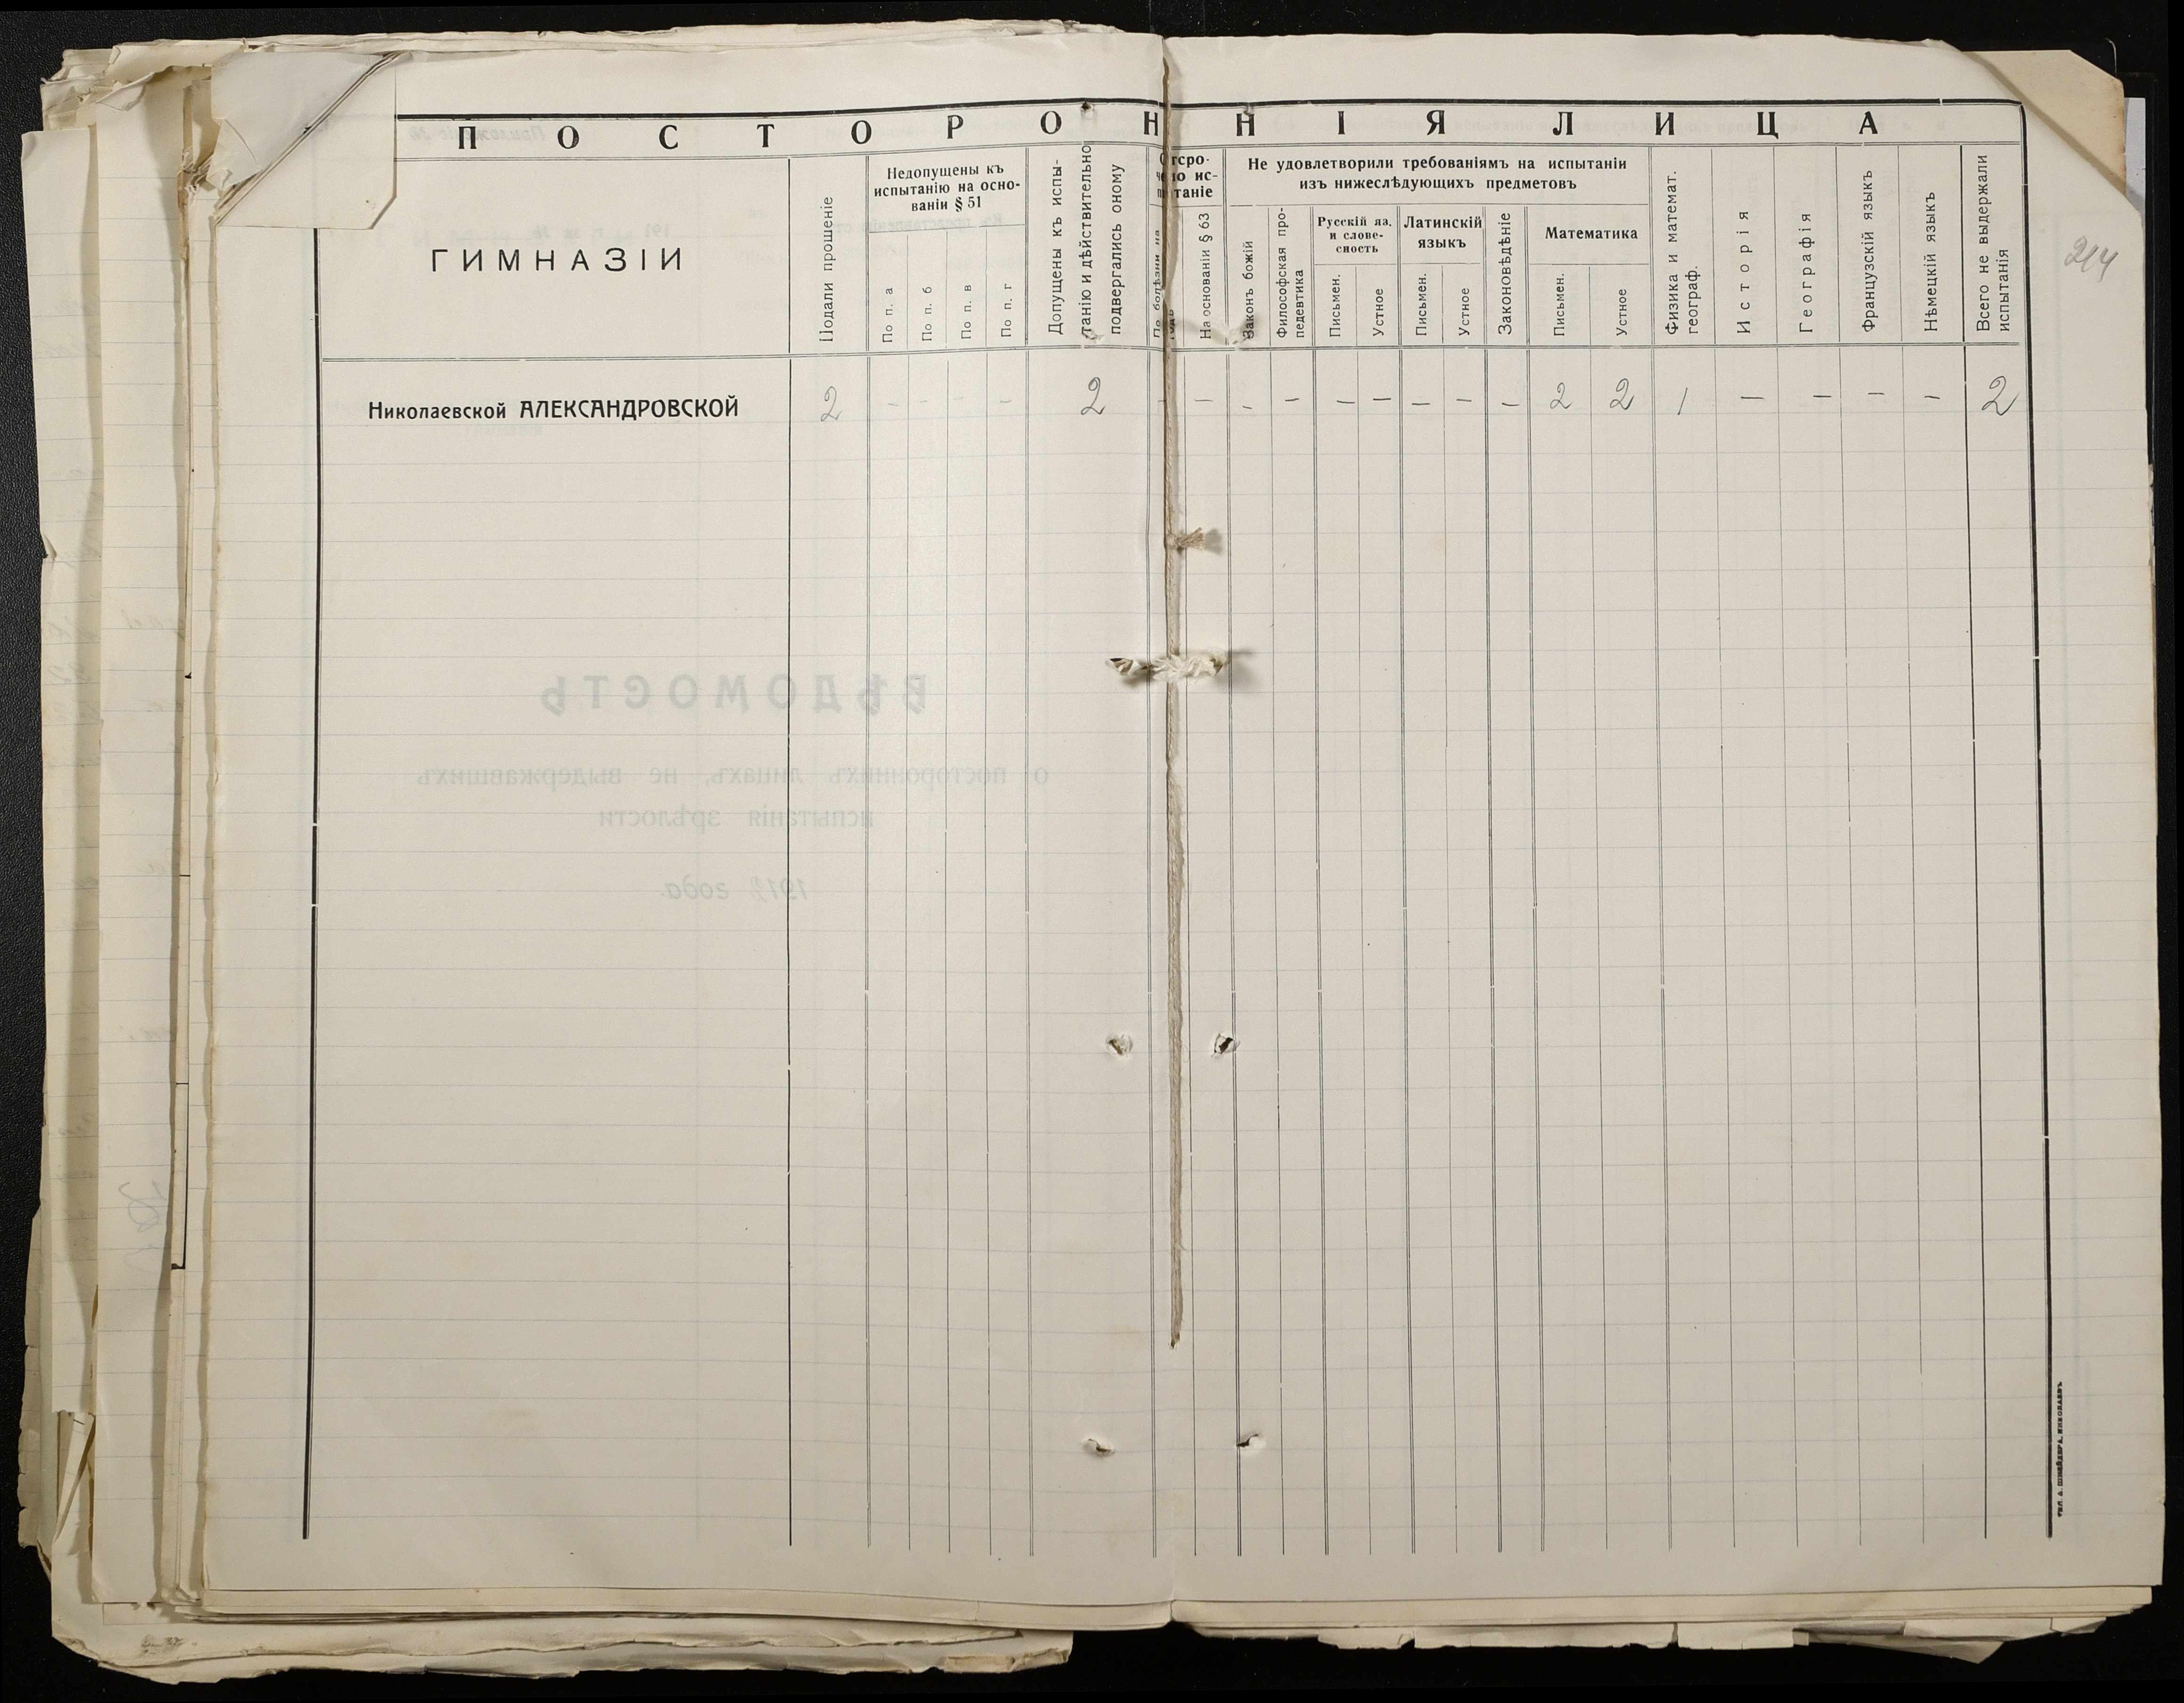 ПОСТОРОННІЯ ЛИЦА
214
ГИМНАЗІИ
Подали прошеніе
Недопущены къ
испытанію на осно-
ваніи § 51
По п. а
По п. б
По п. в
По п. г
Допущены къ испы-
танію и дѣйствительно
подвергались оному
Отсро-
чено ис-
пытаніе
По болѣзни на
годъ
На основаніи § 63
Не удовлетворили требованіямъ на испытаніи
изъ нижеслѣдующихъ предметовъ
Законъ божій
Философская про-
педевтика
Русскій яз.
и слове-
сность
Письмен.
Устное
Латинскій
языкъ
Письмен.
Устное
Законовѣдѣніе
Математика
Письмен.
Устное
Физика и математ.
географ.
Исторія
Географія
Французскій языкъ
Нѣмецкій языкъ
Всего не выдержали
испытанія
Николаевской АЛЕКСАНДРОВСКОЙ 2 – – – – 2 – – – – – – – – – 2 2 1 – – – – 2
ВѢДОМОСТЬ
о постороннихъ лицахъ, не выдержавшихъ
испытанія зрѣлости
года.
ТИП. А. ШНЕЙДЕРА, НИКОЛАЕВЪ